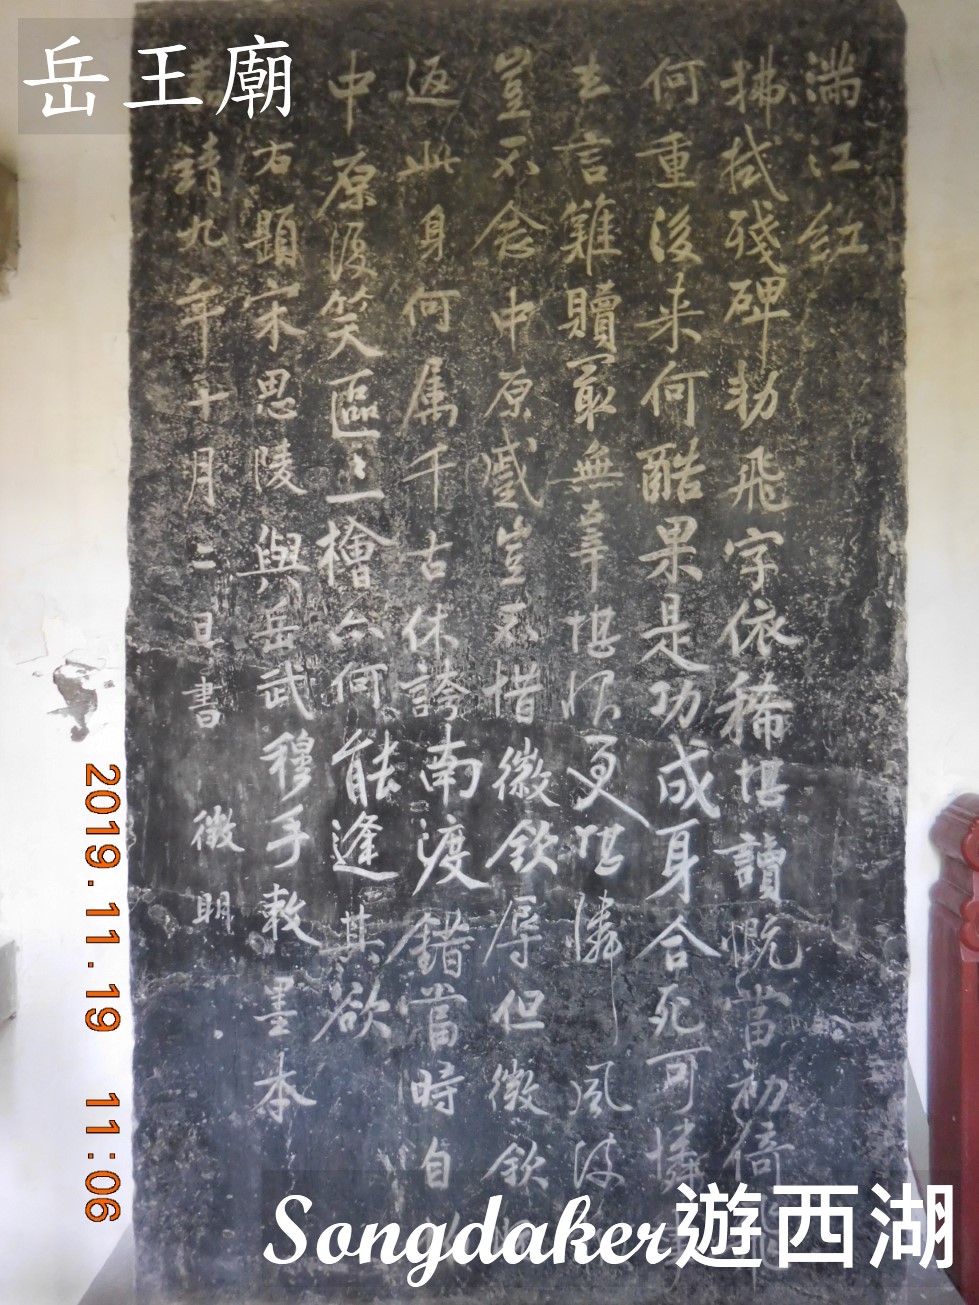 岳王廟
滿江紅
拂拭殘碑勅飛字依稀堪讀慨當初倚
何重後来何酷果是功成身合死可憐
去言難贖最無辜堪恨更堪憐風波
豈不念中原蹙豈不惜徽欽辱但徽欽
返此身何属千古休誇南渡錯當時自
中原復笑區〻一檜亦何能逢其欲
右題宋思陵與岳武穆手敕墨本
靖九年十月二日書 徵明
2019.11.19 11:06
Songdaker遊西湖